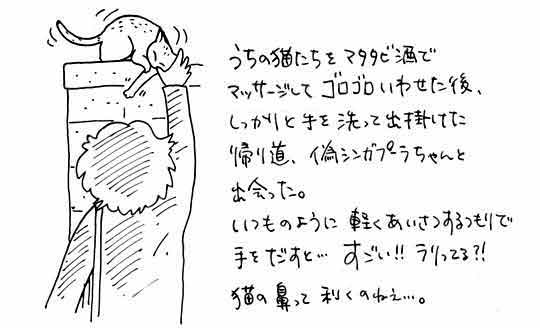 うちの猫たちを マタタビ酒で
マッサージして ゴロゴロいわせた後、
しっかりと手を洗って出掛けた
帰り道、偽シンガプラちゃんと
出会った。
いつものように 軽くあいさつするつもりで
手をだすと… すごい!! ラリってる?!
猫の鼻って 利くのねぇ…。